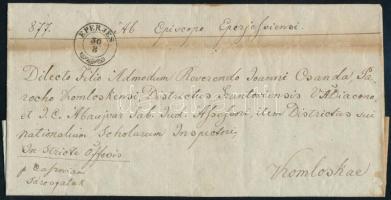 877. Ab Episcopo Eperjessiensi.
EPERJES
30
8
Dilecto Filio Admodum Reverendo Joanni Csanda, Pa,
rocho Komloskensi, Districtus VADiacono,
et I. C. Abaujvar Tab. Jud. Assessori, item Districtus sui
nationalium Scholarum Inspectori,
In Stricte Officio
p. Cassovia
Sárospatak
Komloskae